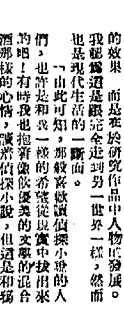 的效果，而是在於研究作品中人物的發展。
我認爲這是跟完全走到另一世界一樣，然而
也是現代生活的一斷面。
「由此可知，那般喜歡讀偵探小說的人
們，也許是和我一樣的希望從現實中拔出來
的吧！有時我也抱著像飲愛與文學的混合
酒那樣的心情，讀着偵探小說，但這是和我